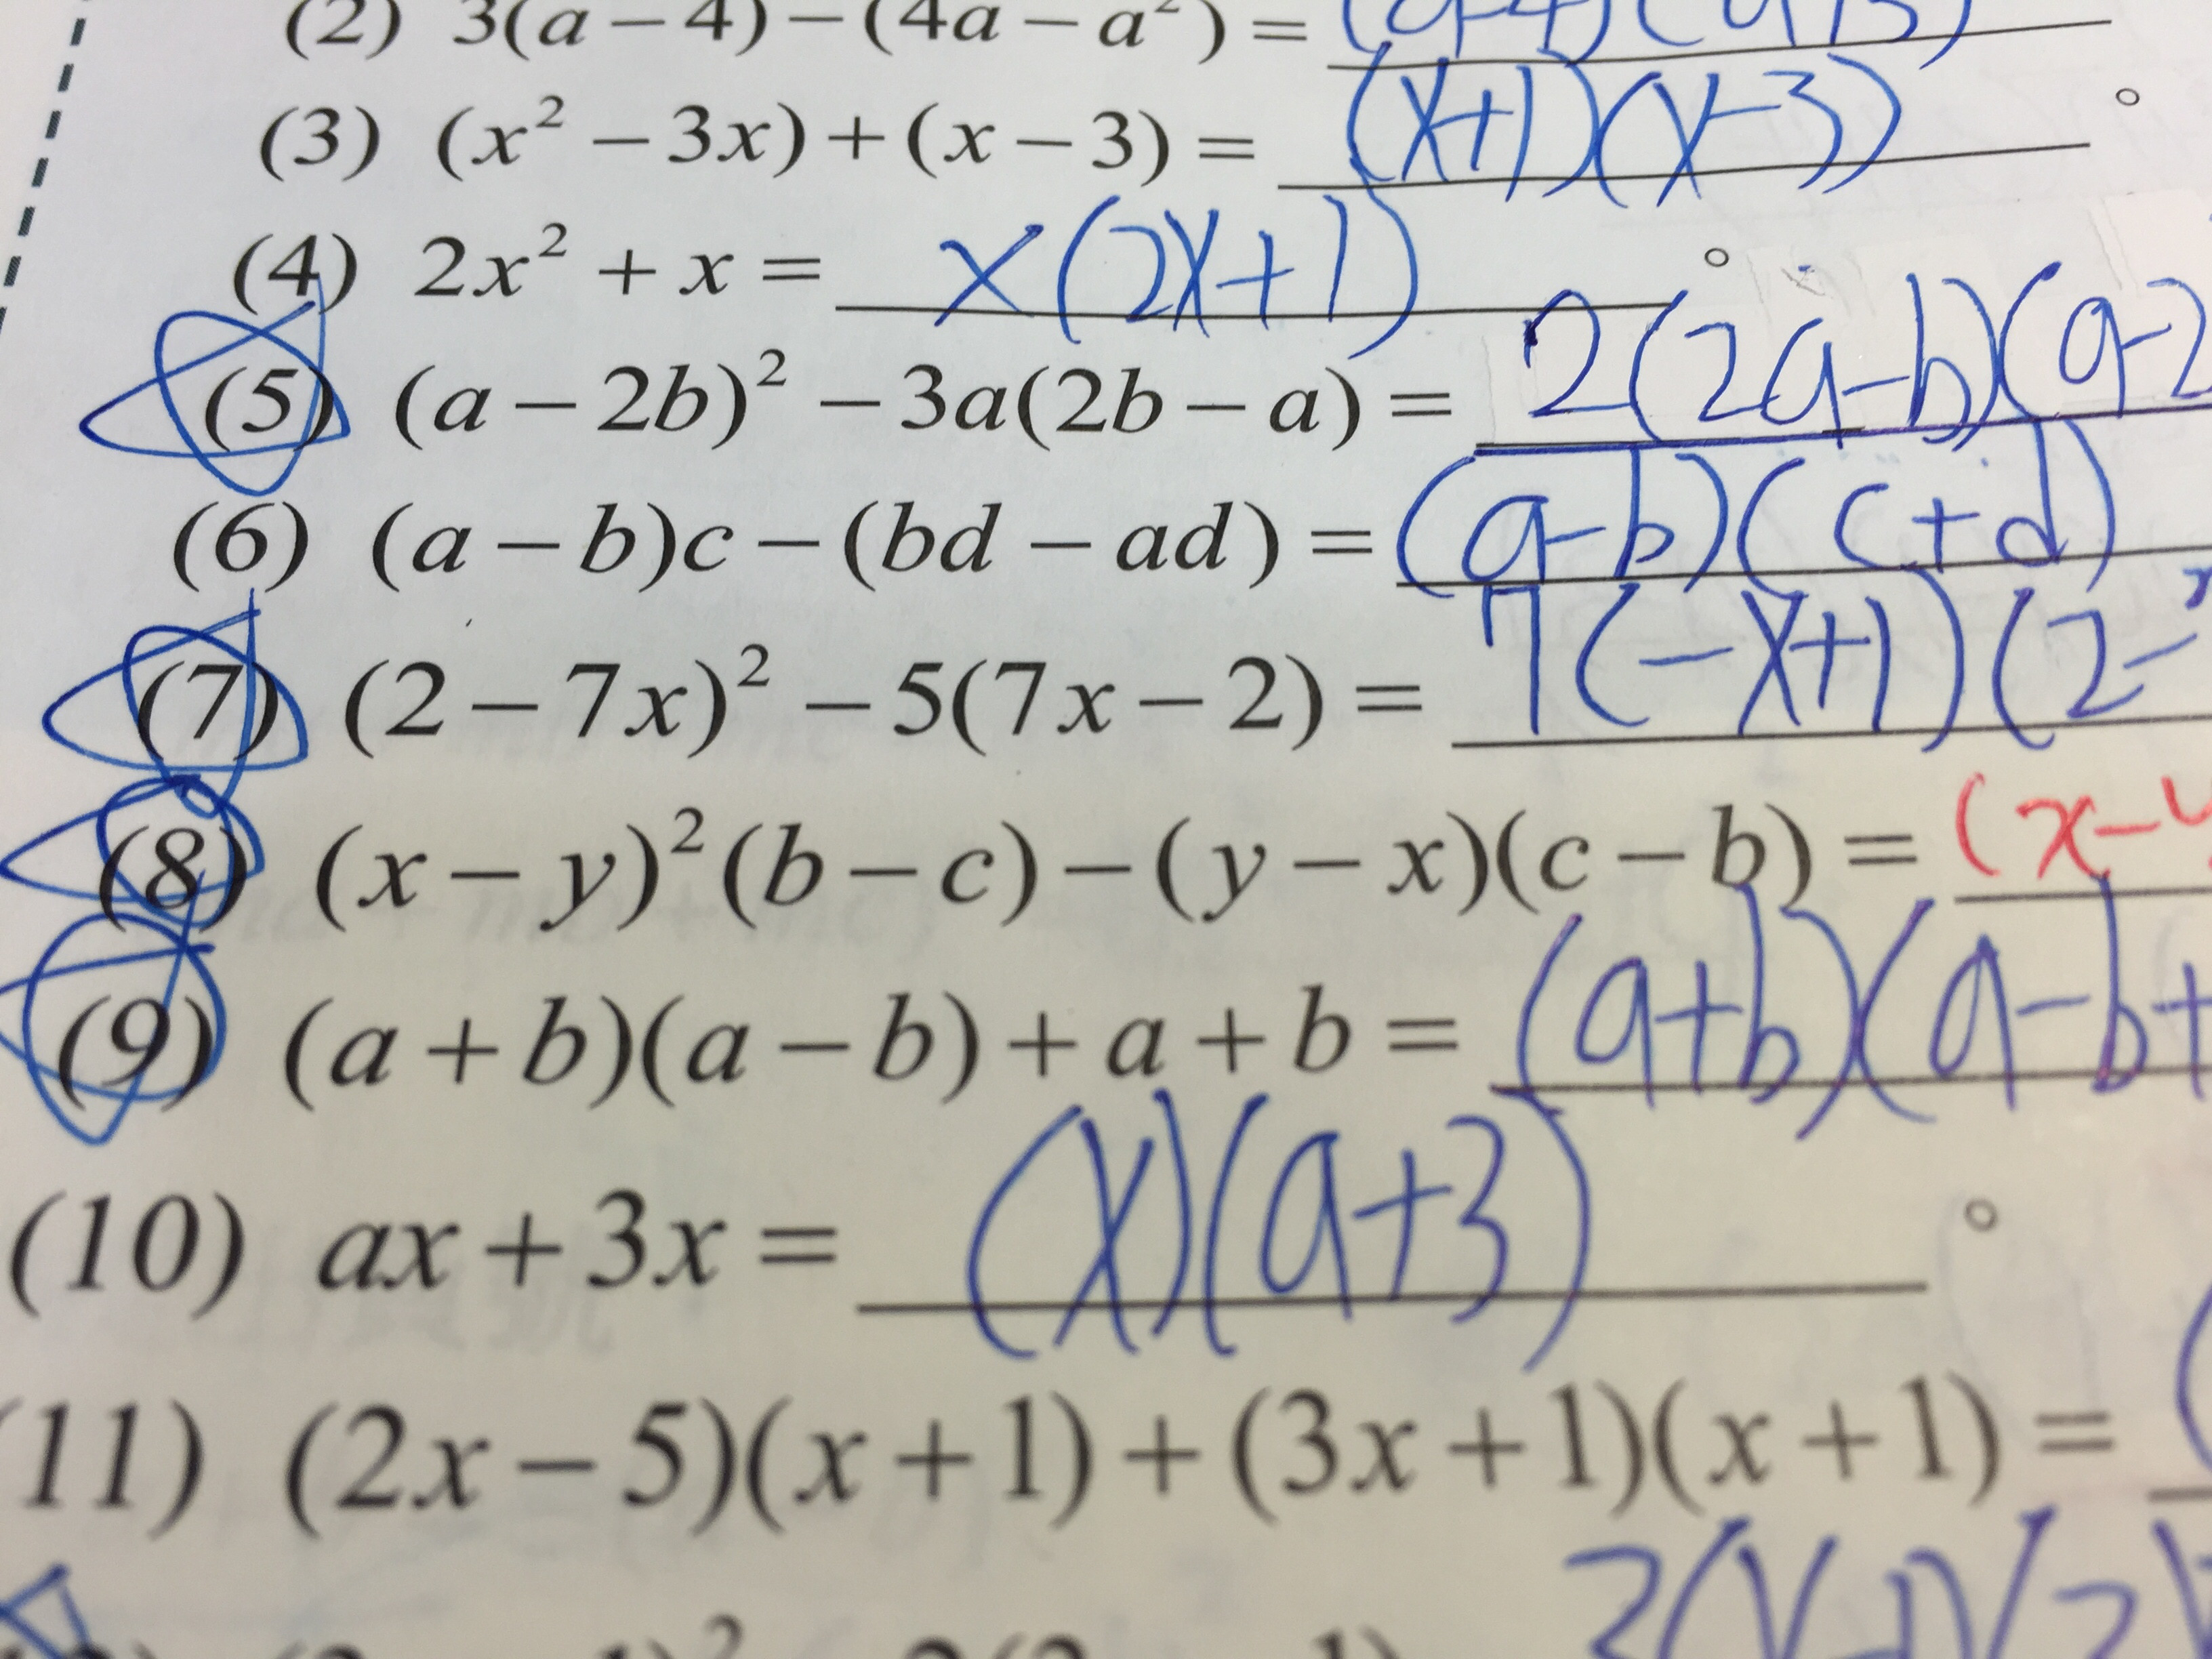 (2) 3(a−4)−(4a−a²)= (a-4)(a+3)
(3) (x²−3x)+(x−3)= (x+1)(x-3) 。
(4) 2x²+x= x(2x+1) 。
(5) (a−2b)²−3a(2b−a)= 2(2a-b)(a-2
(6) (a−b)c−(bd−ad)= (a-b)(c+d)
(7) (2−7x)²−5(7x−2)= 7(-x+1)(2-
(8) (x−y)²(b−c)−(y−x)(c−b)= (x-y
(9) (a+b)(a−b)+a+b= (a+b)(a-b+
(10) ax+3x= (x)(a+3) 。
11) (2x−5)(x+1)+(3x+1)(x+1)= (